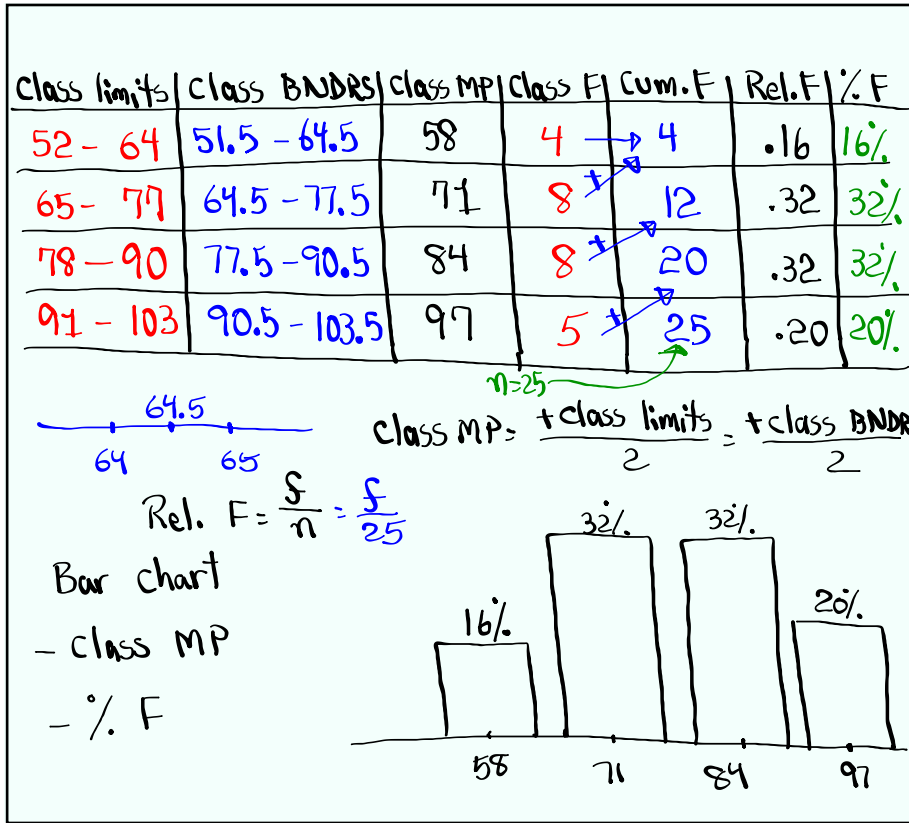 Class limits Class BNDRS Class MP Class F Cum. F Rel. F % F
52 - 64 51.5 - 64.5 58 4 → 4 .16 16%
65 - 77 64.5 - 77.5 71 8 + 12 .32 32%
78 - 90 77.5 - 90.5 84 8 + 20 .32 32%
91 - 103 90.5 - 103.5 97 5 + 25 .20 20%
n=25
64.5
64 65
Class MP = +class limits / 2 = +class BNDR / 2
Rel. F = f/n = f/25
Bar chart
- Class MP
- % F
16% 32% 32% 20%
58 71 84 97